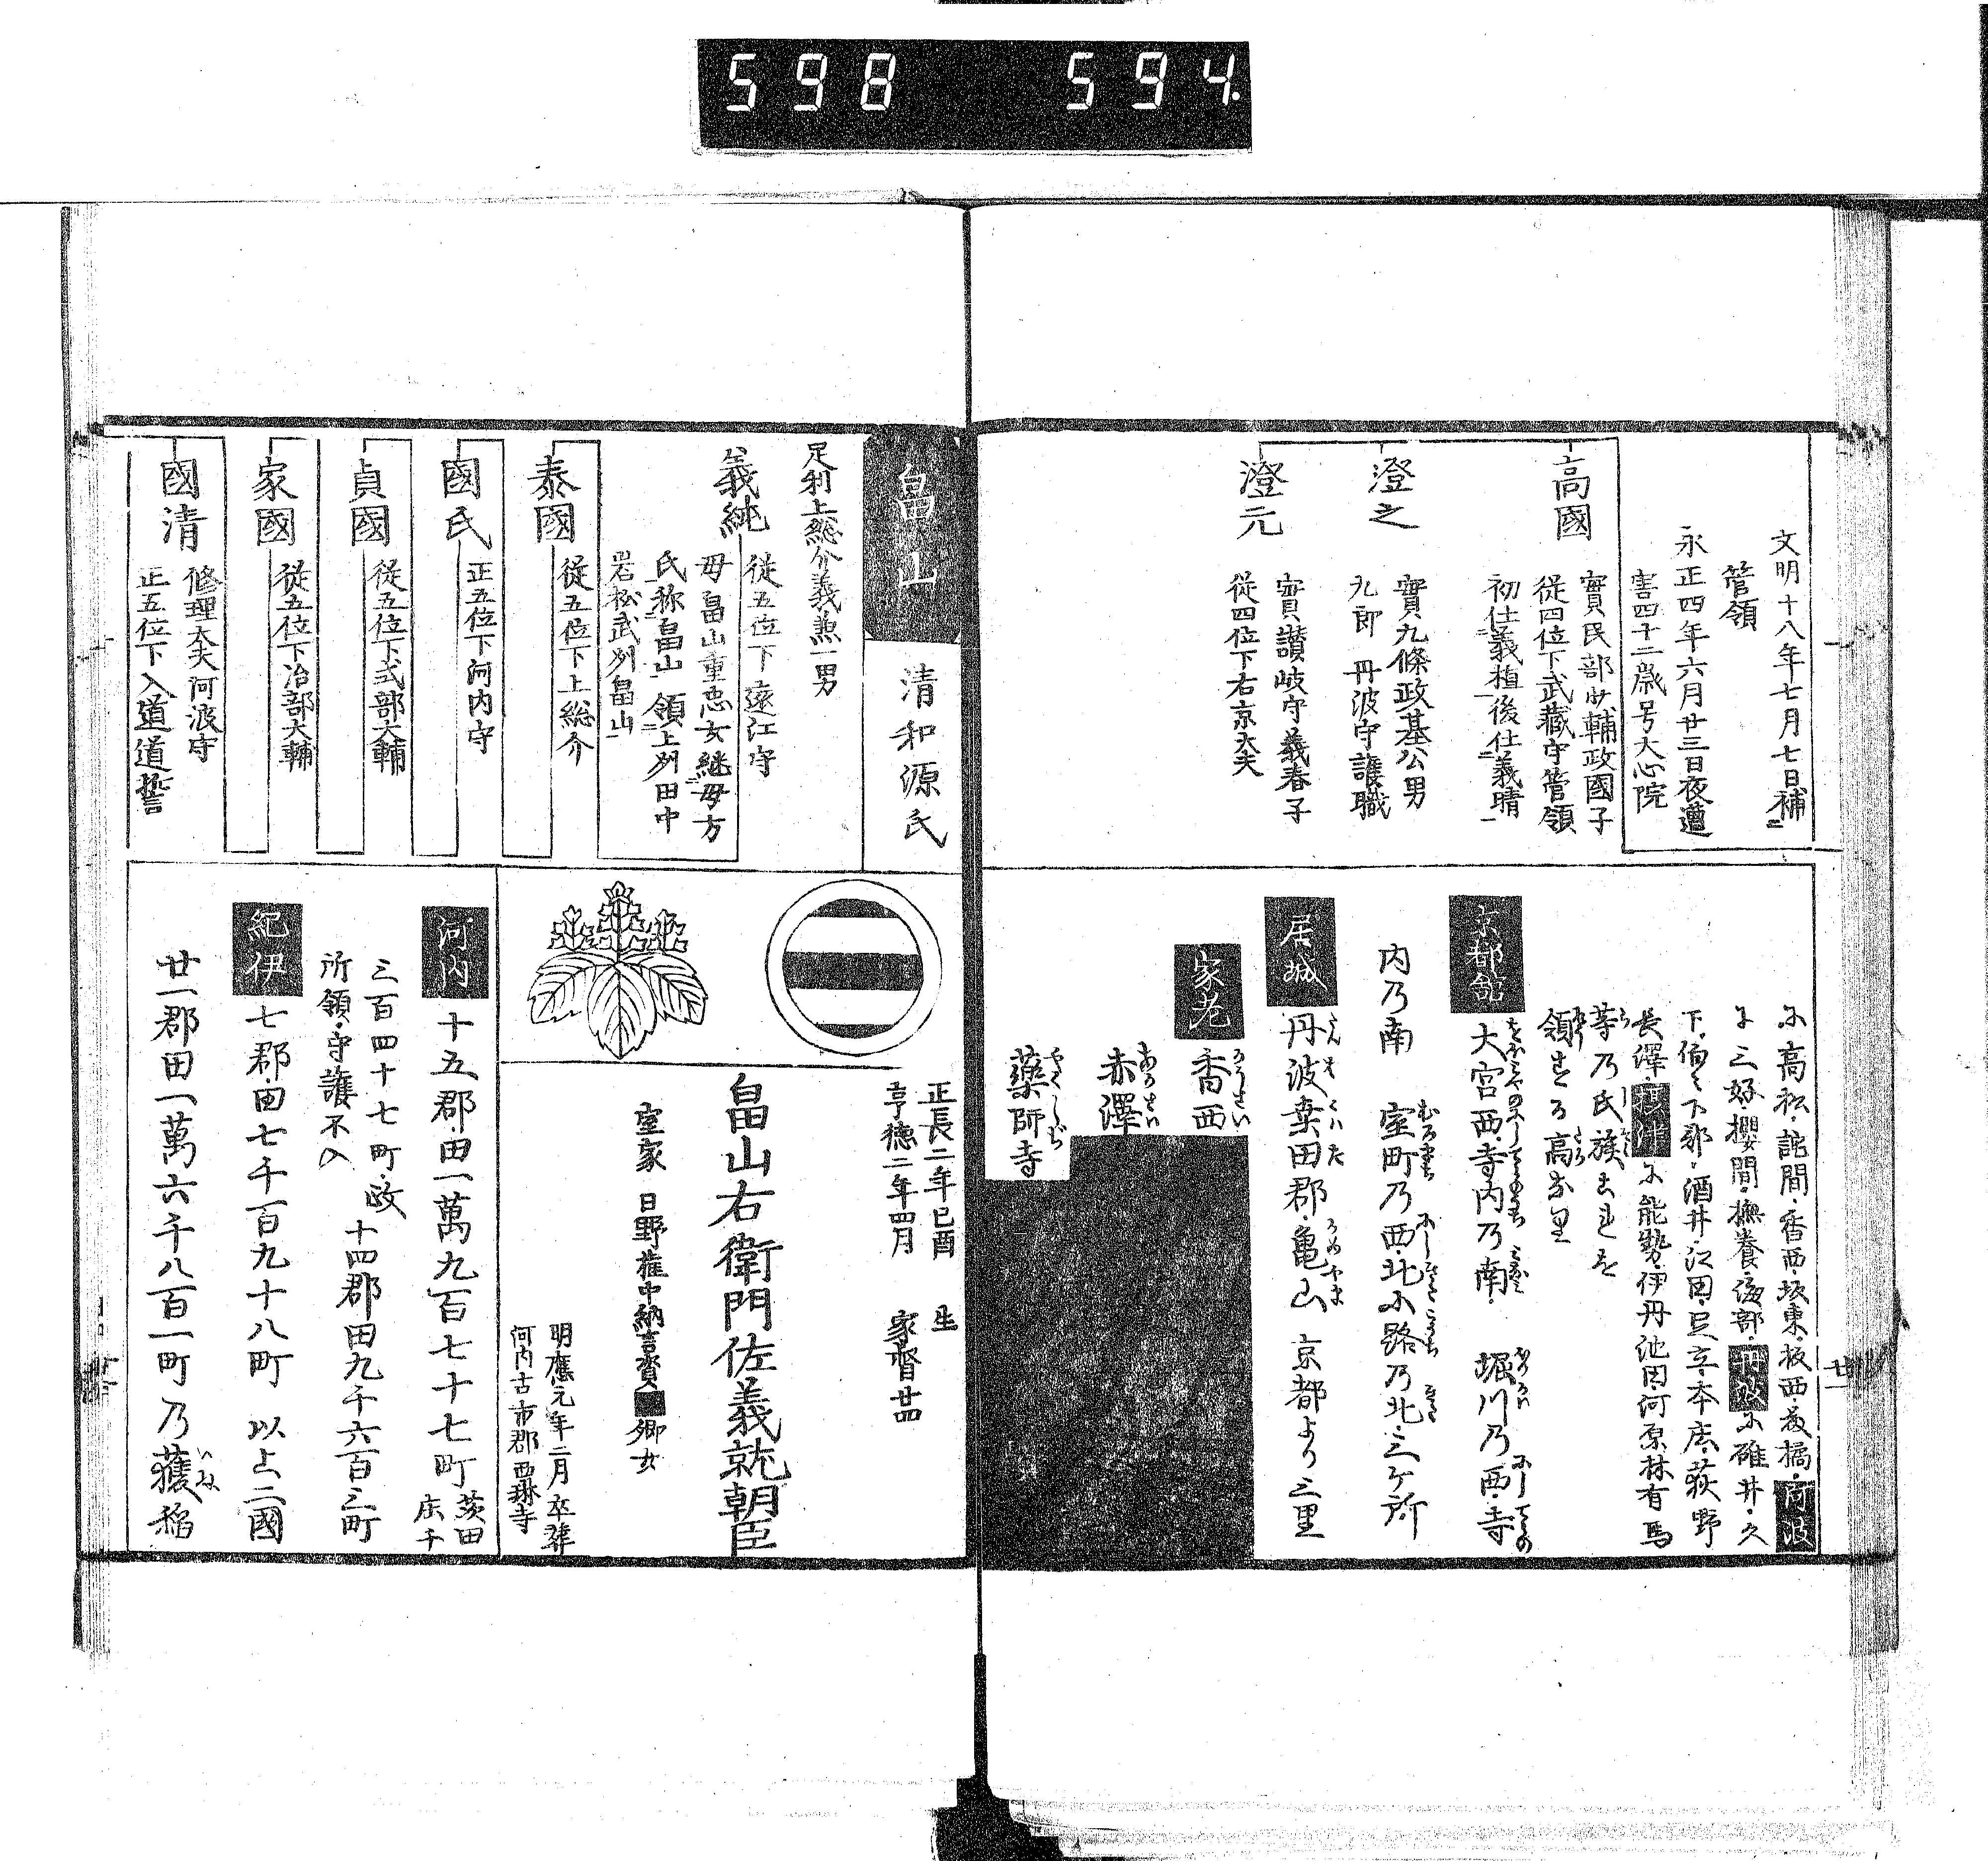 598 594
文明十八年七月七日補
管領
永正四年六月廿三日夜遭
害四十二歳号大心院
高國
實民部少輔政國子
從四位下武藏守管領
初仕義植後仕義晴
澄之
實九條政基公男
九郎 丹波守護職
澄元
實讃岐守義春子
從四位下右京大夫
尓高松・詫間・香西・坂東・坂西・
阿波
尓三好・櫻間・撫養・海部・
丹波
尓碓井・久
下・酒井・江田・足立・本庄・荻野
長澤・
攝津
尓能勢・伊丹池田河原林有馬
等乃氏族
京都館
大宮西・寺内乃南・堀川乃西・寺
内乃南 室町乃西・北小路乃北・三ケ所
居城
丹波桒田郡・亀山 京都より三里
家老
香西
かうさい
赤澤
藥師寺
やくしじ
畠山
清和源氏
足利上総介義兼一男
義純
從五位下遠江守
母畠山重忠女継母方
氏称畠山 領上州田中
岩松武州畠山
泰國
從五位下上総介
國氏
正五位下河内守
貞國
從五位下式部大輔
家國
從五位下治部大輔
國清
修理大夫阿波守
正五位下入道道誓
正長二年己酉 生
享徳二年四月 家督廿四
畠山右衛門佐義就朝臣
室家 日野権中納言資 卿女
明應元年二月卒葬
河内古市郡西琳寺
河内
十五郡・田一萬九百七十七町 茨田
庄千
三百四十七町・政
所領・守護不入
十四郡田九千六百三町
紀伊
七郡・田七千百九十八町 以上二國
廿一郡田一萬六千八百一町乃穫稲